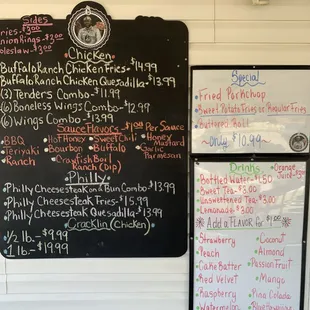 Sides
Fries-$3.00
Onion Rings-$3.00
Coleslaw-$3.00
Chicken
Buffalo Ranch Chicken Fries-$14.99
Buffalo Ranch Chicken Quesadilla-$13.99
(3) Tenders Combo-$11.99
(6) Boneless Wings Combo-$12.99
(6) Wings Combo-$13.99
Sauce Flavors-$1.00 Per Sauce
BBQ Hot Honey Sweet Chili Honey Mustard
Teriyaki Bourbon Buffalo Garlic Parmesan
Ranch Crawfish Boil Ranch (Dip)
Philly
Philly Cheesesteak on a Bun Combo-$13.99
Philly Cheesesteak Fries-$15.99
Philly Cheesesteak Quesadilla-$13.99
Cracklin (Chicken)
1/2 lb.-$9.99
1 lb.-$19.99
Special
Fried Porkchop
Sweet Potato Fries or Regular Fries
Buttered Roll
Only $10.99
Drinks
Orange Juice-
Bottled Water-
Sweet Tea-$3.00
Unsweetened Tea-$3.00
Lemonade-$3.00
Add a Flavor for
Strawberry Coconut
Peach Almond
Cake Batter Passion Fruit
Red Velvet Mango
Raspberry Pina Colada
Watermelon